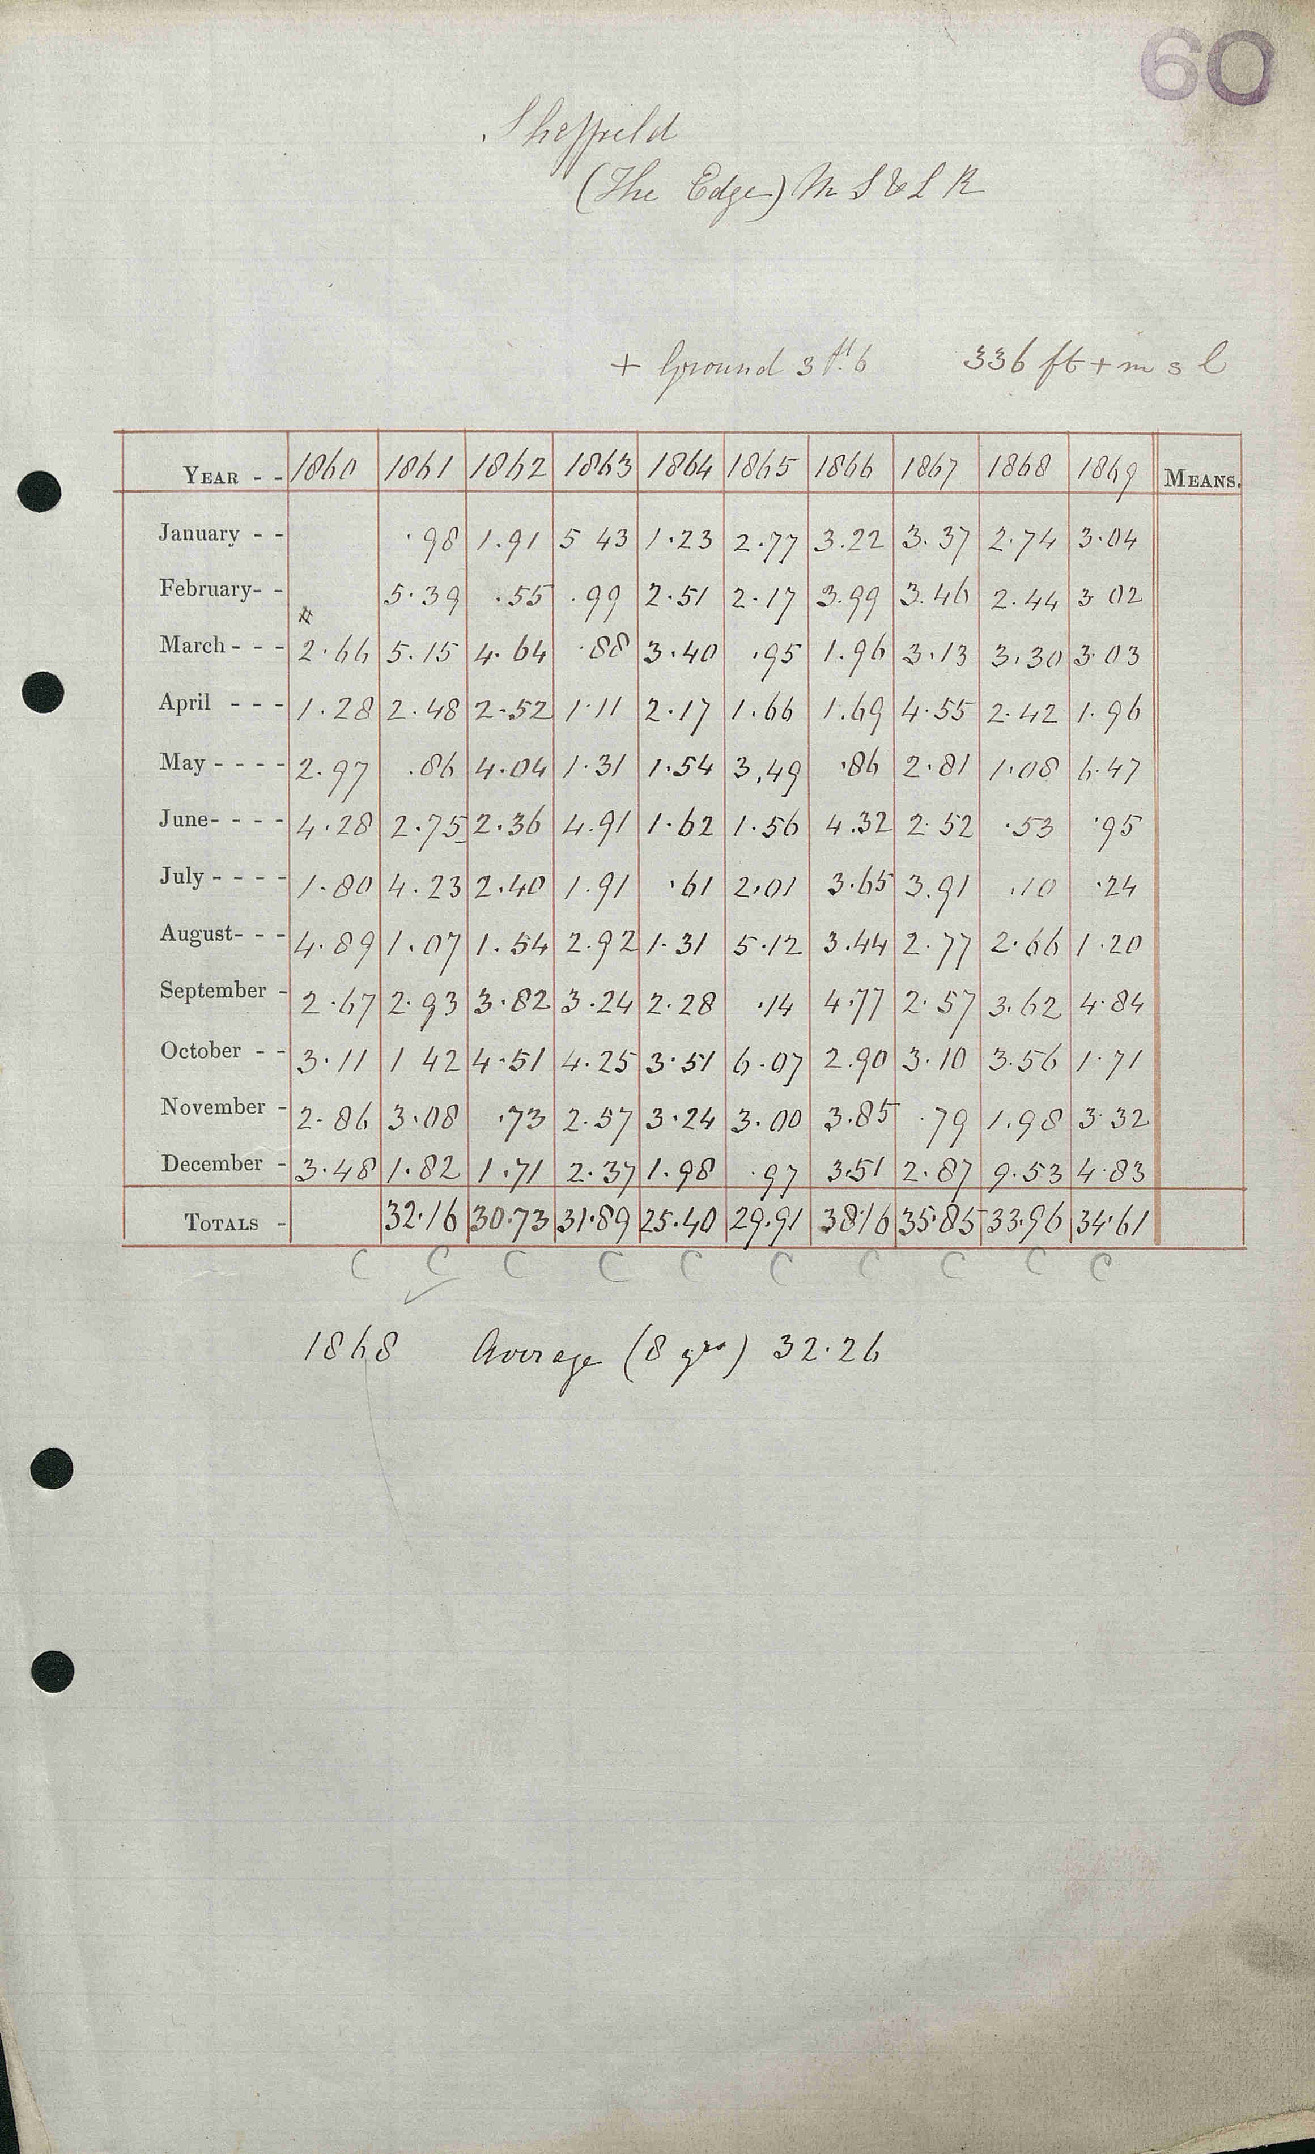 60
Sheffield
(The Edge) M S & L R
+ Ground 3 ft. 6 336 ft + m s l
YEAR - - 1860 1861 1862 1863 1864 1865 1866 1867 1868 1869 MEANS.
January - - ·98 1.91 5 43 1·23 2·77 3.22 3.37 2.74 3·04
February- - 5·39 .55 .99 2·51 2·17 3.99 3.46 2.44 3 02
March - - - 2·66 5.15 4.64 ·88 3·40 .95 1.96 3.13 3.30 3·03
April - - - 1.28 2.48 2·52 1·11 2.17 1.66 1.69 4.55 2.42 1.96
May - - - - 2.97 .86 4.04 1.31 1.54 3,49 ·86 2.81 1.08 6.47
June- - - - 4·28 2.75 2.36 4.91 1.62 1.56 4.32 2.52 ·53 ·95
July - - - - 1.80 4.23 2.40 1.91 ·61 2.01 3.65 3.91 .10 ·24
August- - - 4.89 1.07 1.54 2.92 1.31 5·12 3.44 2.77 2.66 1·20
September - 2.67 2.93 3.82 3.24 2.28 ·14 4.77 2.57 3.62 4.84
October - - 3.11 1 42 4.51 4.25 3.51 6.07 2.90 3.10 3.56 1.71
November - 2.86 3.08 ·73 2.57 3.24 3.00 3.85 ·79 1.98 3.32
December - 3.48 1.82 1.71 2.37 1.98 ·97 3.51 2.87 9.53 4.83
TOTALS - 32·16 30·73 31·89 25.40 29.91 38·16 35·85 33·96 34·61
C C C C C C C C C C
1868 Average (8 yrs) 32.26